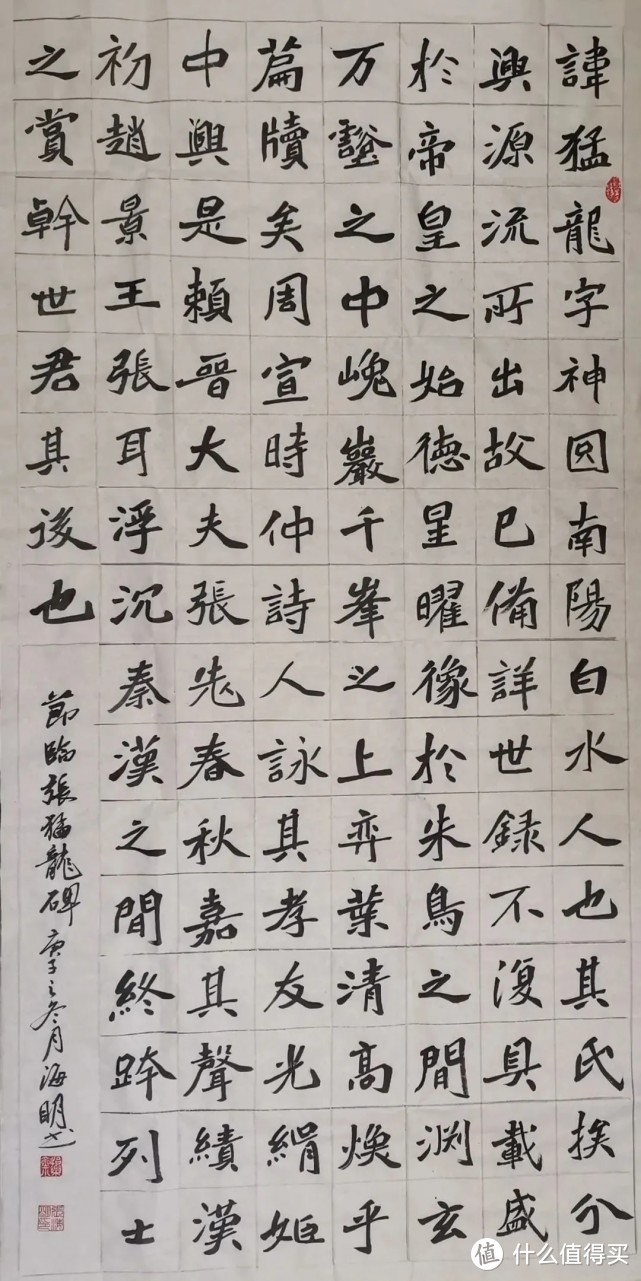 諱猛龍字神囧南陽白水人也其氏挨分
興源流所出故已備詳世録不復具載盛
於帝皇之始德星曜像於朱鳥之間渊玄
万壑之中嵬巖千峯之上弈葉清高煥乎
篇牘矣周宣時仲詩人詠其孝友光緝姬
中興是頼晉大夫張老春秋嘉其聲績漢
初趙景王張耳浮沉秦漢之間終跨列士
之賞幹世君其後也
節臨張猛龍碑庚子之冬月海明书
值 什么值得买